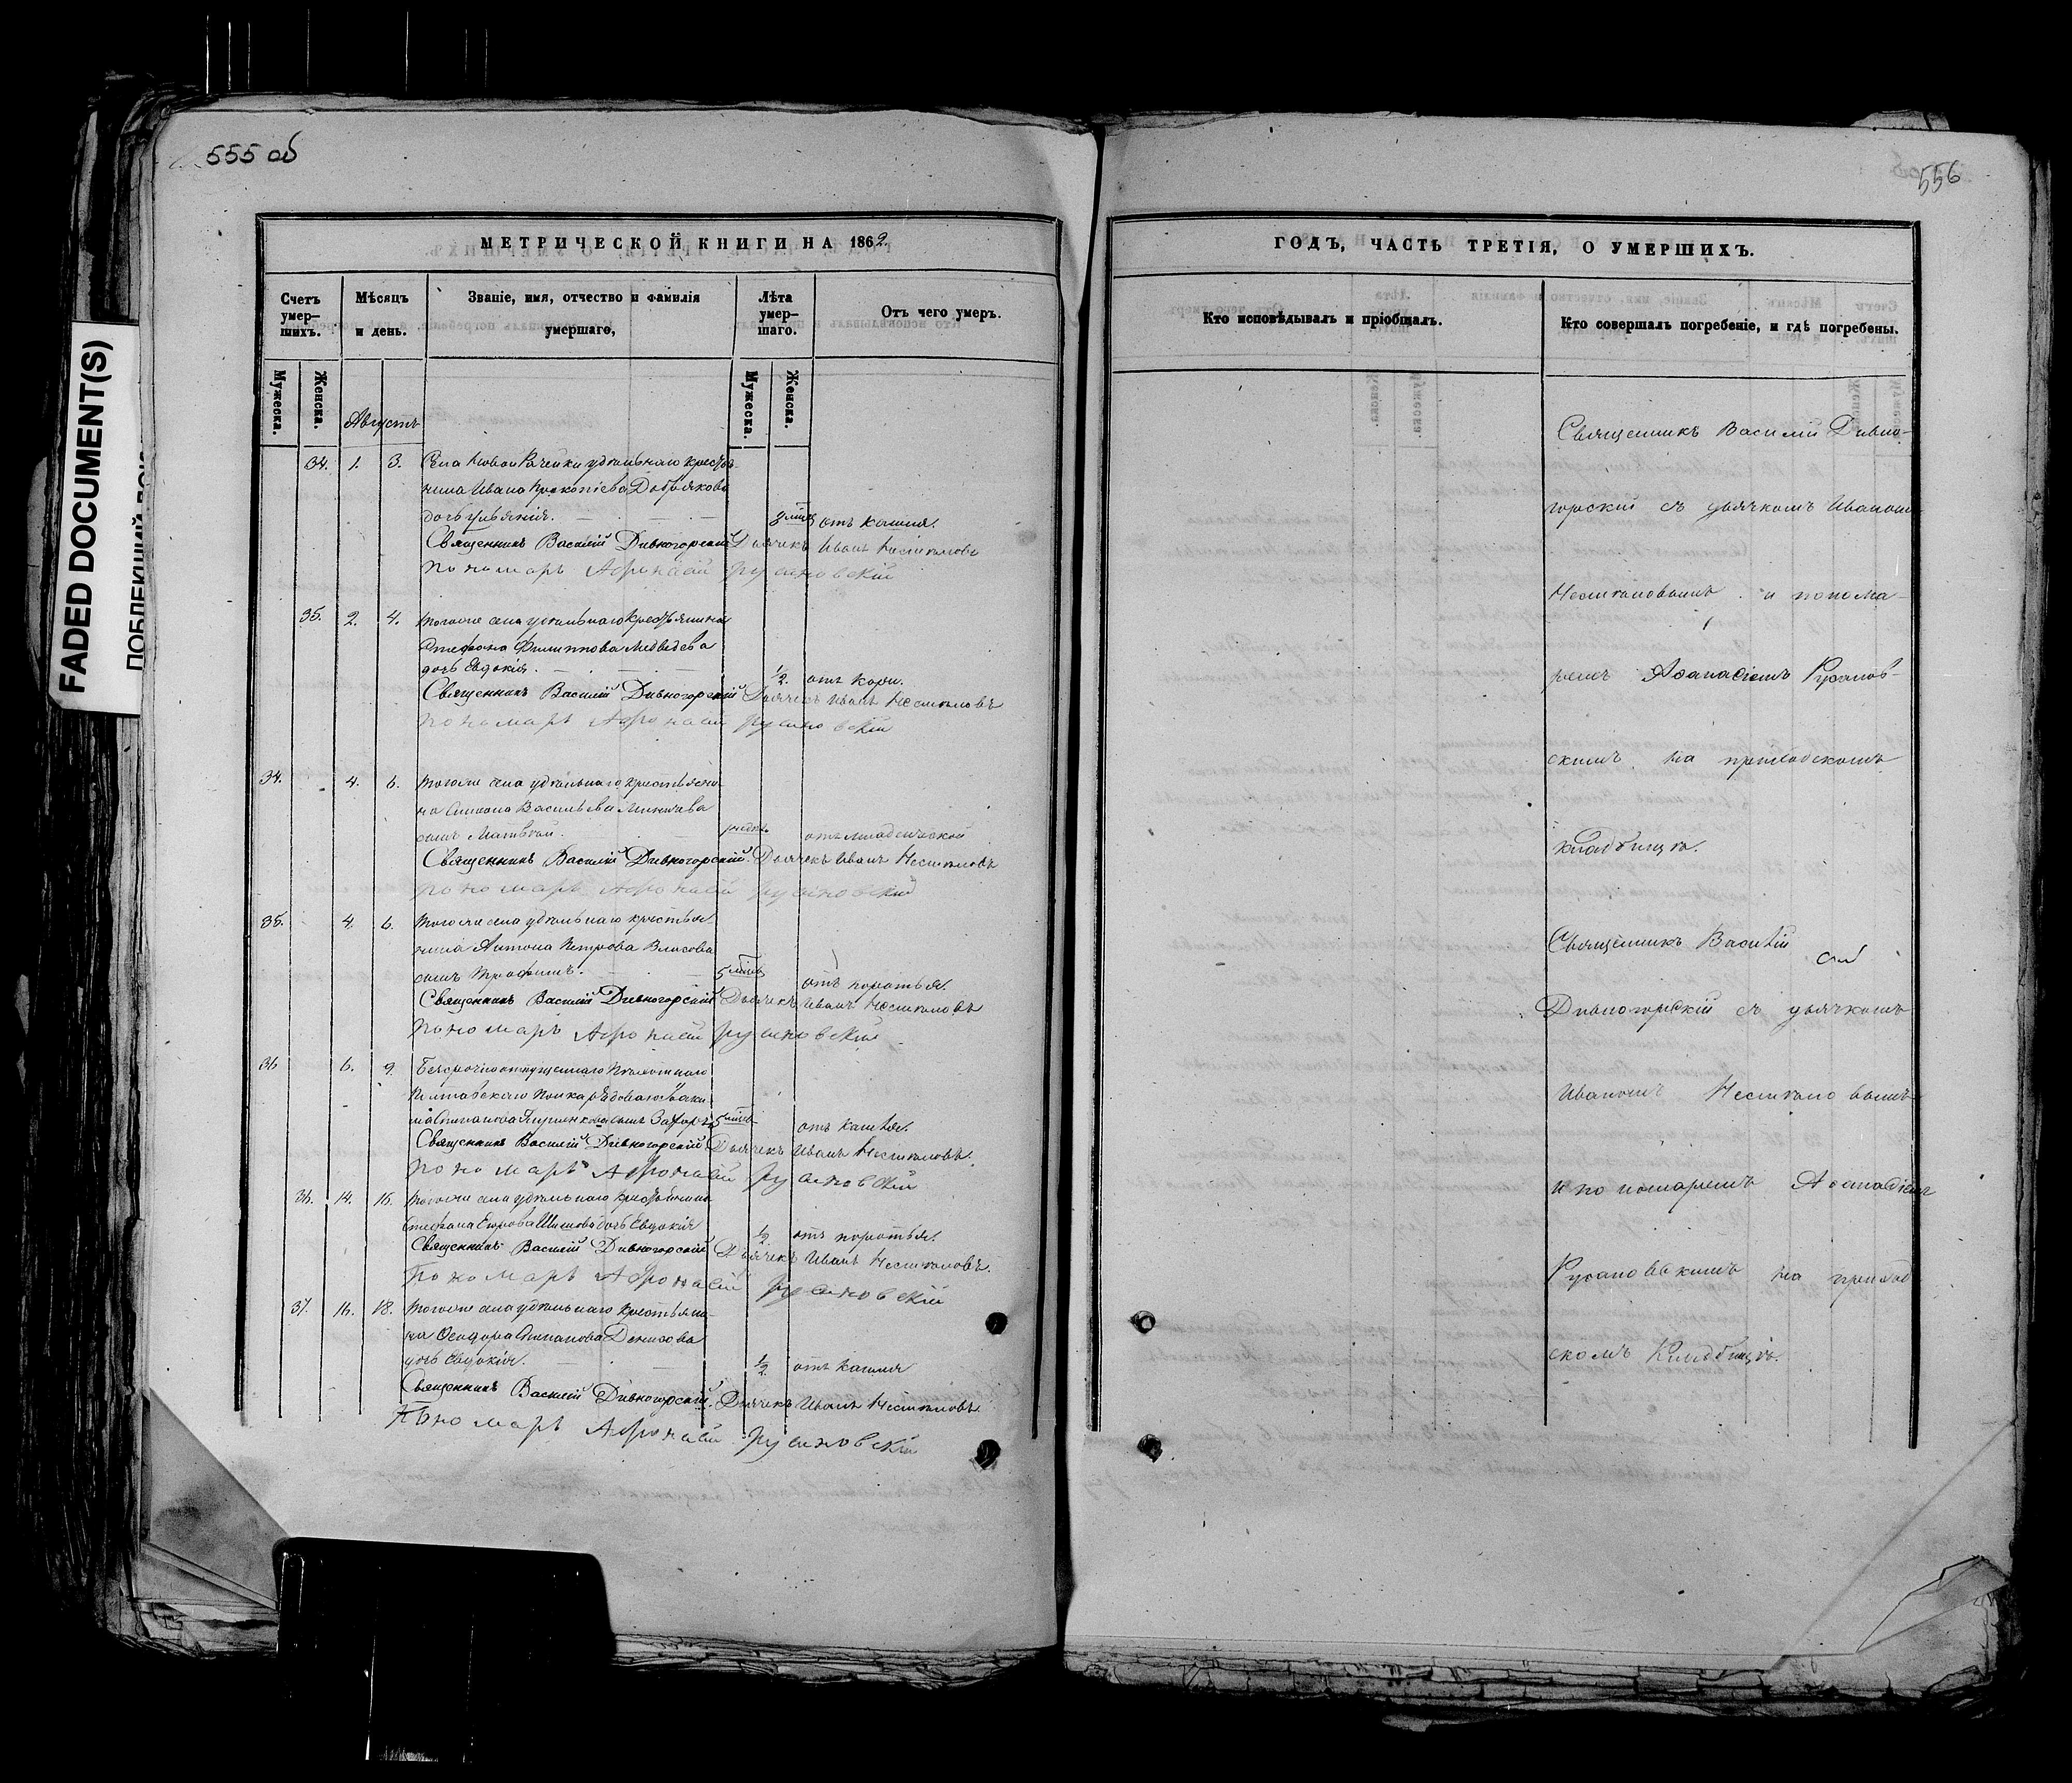 555 об
МЕТРИЧЕСКОЙ КНИГИ НА 1862
Счетъ умер–шихъ.
Мѣсяцъ и день.
Званіе, имя, отчество и фамилія умершаго,
Лѣта умер–шаго.
Отъ чего умеръ.
Мужеска.
Женска.
Мужеска.
Женска.
Августъ
34. 1. 3. Села Новой Рачейки удѣльнаго крестья-
нина Ивана Прокопіева Добрякова
дочь Ульянія. от кашля.
Священникъ Василій Дивногорскій Дьячекъ Иванъ
Пономарь Афонасій Русановскій
35. 2. 4. Тогоже села удѣльнаго крестьянина
Стефана Филиппова Медведева
дочь Евдокія. 1/2. отъ кори.
Священникъ Василій Дивногорскій Дьячекъ Иванъ
Пономарь Афонасій Русановскій
34. 4. 6. Тогоже села удѣльнаго крестьяни-
на Васильева
сынъ Матвѣй. отъ младенческой
Священникъ Василій Дивногорскій Дьячекъ Иванъ
Пономарь Афонасій Русановскій
35. 4. 6. Тогоже села удѣльнаго крестья-
нина Антона Петрова Власова
сынъ Трофимъ. 5 отъ поротья.
Священникъ Василій Дивногорскій Дьячекъ Иванъ
Пономарь Афонасій Русановскій
36 6. 9. Безсрочноотпущеннаго
Полтавскаго Полка рядоваго
сынъ Захаръ 5 отъ кашля.
Священникъ Василій Дивногорскій Дьячекъ Иванъ
Пономарь Афонасій Русановскій
36. 14. 16. Тогоже села удѣльнаго крестьянина
Стефана Егорова Шишова дочь Евдокія 1/2 отъ поротья.
Священникъ Василій Дивногорскій Дьячекъ Иванъ
Пономарь Афонасій Русановскій
37. 16. 18. Тогоже села удѣльнаго крестьяни-
на Ѳеодора Степанова Денисова
дочь Евдокія. 1/2 отъ кашля
Священникъ Василій Дивногорскій. Дьячекъ Иванъ
Пономарь Афонасій Русановскій
556
ГОДЪ, ЧАСТЬ ТРЕТІЯ, О УМЕРШИХЪ.
Кто исповѣдывалъ и пріобщалъ.
Кто совершалъ погребеніе, и гдѣ погребены.
Священникъ Василій Дивно-
горскій съ дьячкомъ Иваномъ
и понома-
ремъ Аѳанасіемъ Русанов-
скимъ на приходскомъ
кладбищѣ.
Священникъ Василій
Дивногорскій съ дьячкомъ
Иваномъ
и пономаремъ Аѳанасіемъ
Русановскимъ на приход
скомъ Кладбищѣ.
FADED DOCUMENT(S)